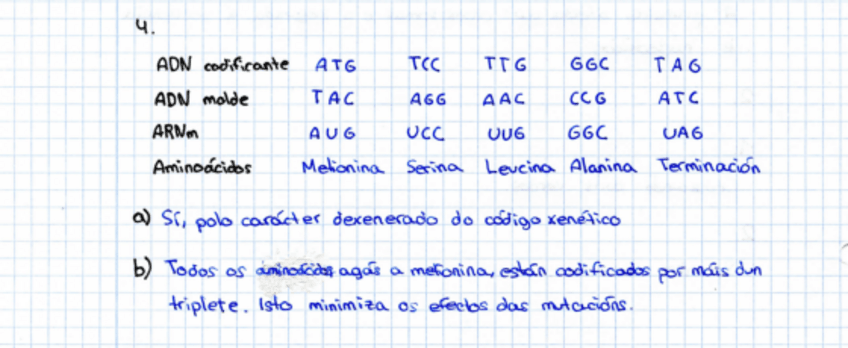 4.
ADN codificante ATG TCC TTG GGC TAG
ADN molde TAC AGG AAC CCG ATC
ARNm AUG UCC UUG GGC UAG
Aminoácidos Metionina Serina Leucina Alanina Terminación
a) Sí, polo carácter dexenerado do código xenético
b) Todos os aminoácidos agás a metonina, están codificados por máis dun
triplete. Isto minimiza os efectos das mutacións.